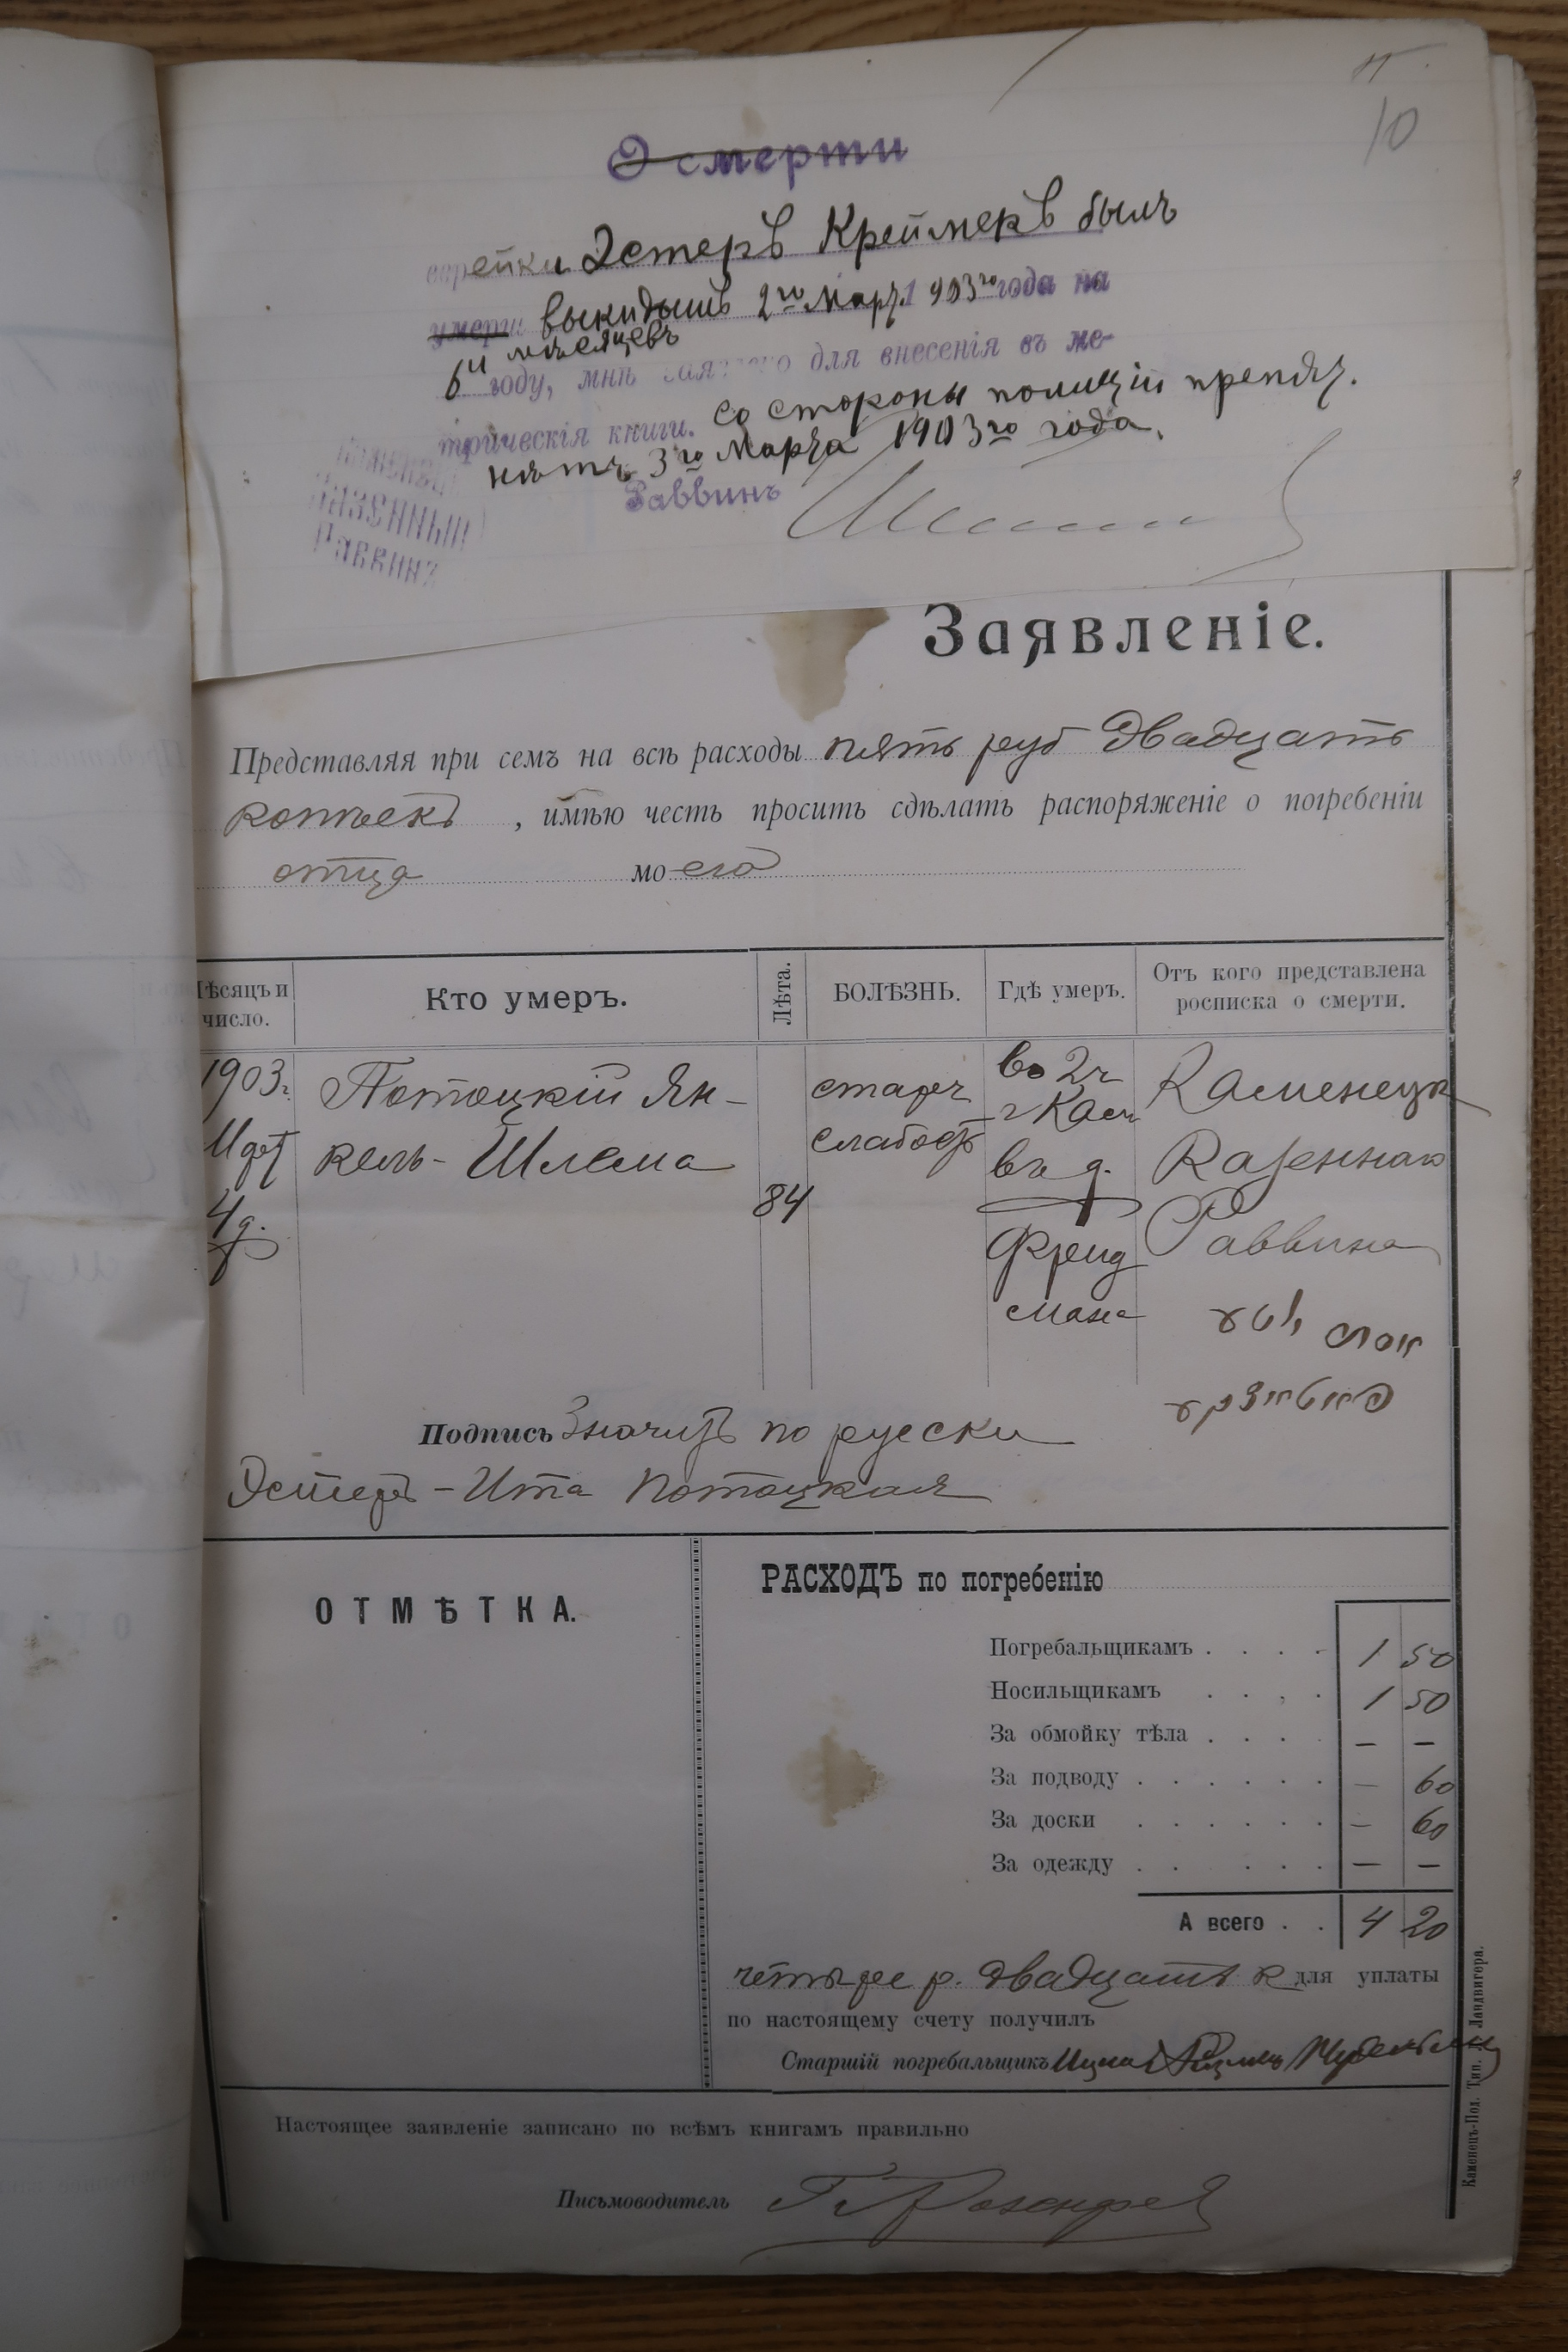 10
О смерти
еврейки Эстеръ Креймеръ былъ
умерш выкидышъ 2го Март. 1903го года на
6и мѣсяцевъ
году, мнѣ заявлено для внесенія въ ме-
трическія книги. со стороны полиціи препят.
нѣтъ 3го Марта 1903го года.
Раввинъ
Казенный
Раввинъ
Заявленіе.
Представляя при семъ на всѣ расходы пять руб двадцать
копѣекъ, имѣю честь просить сдѣлать распоряженіе о погребеніи
отца моего
Мѣсяцъ и число. Кто умеръ. Лѣта. БОЛѢЗНЬ. Гдѣ умеръ. Отъ кого представлена росписка о смерти.
1903г. Потоцкій Ян- старч во 2ч Каменецк
Март кель-Шлема слабость г Кам Казеннаго
4д. 84 въ д. Раввина
Фрид
мана
Подпись Значитъ по русски
Эстеръ-Ита Потоцкая
ОТМѢТКА.
РАСХОДЪ по погребенію
Погребальщикамъ . . . . 1 50
Носильщикамъ . . . . 1 50
За обмойку тѣла . . . . — —
За подводу . . . . . . — 60
За доски . . . . . . — 60
За одежду . . . . . . — —
А всего . . 4 20
четыре р. двадцать к для уплаты
по настоящему счету получилъ
Старшій погребальщикъ
Настоящее заявленіе записано по всѣмъ книгамъ правильно
Письмоводитель Розенфе
Каменецъ-Под. Тип. Ландвигера.